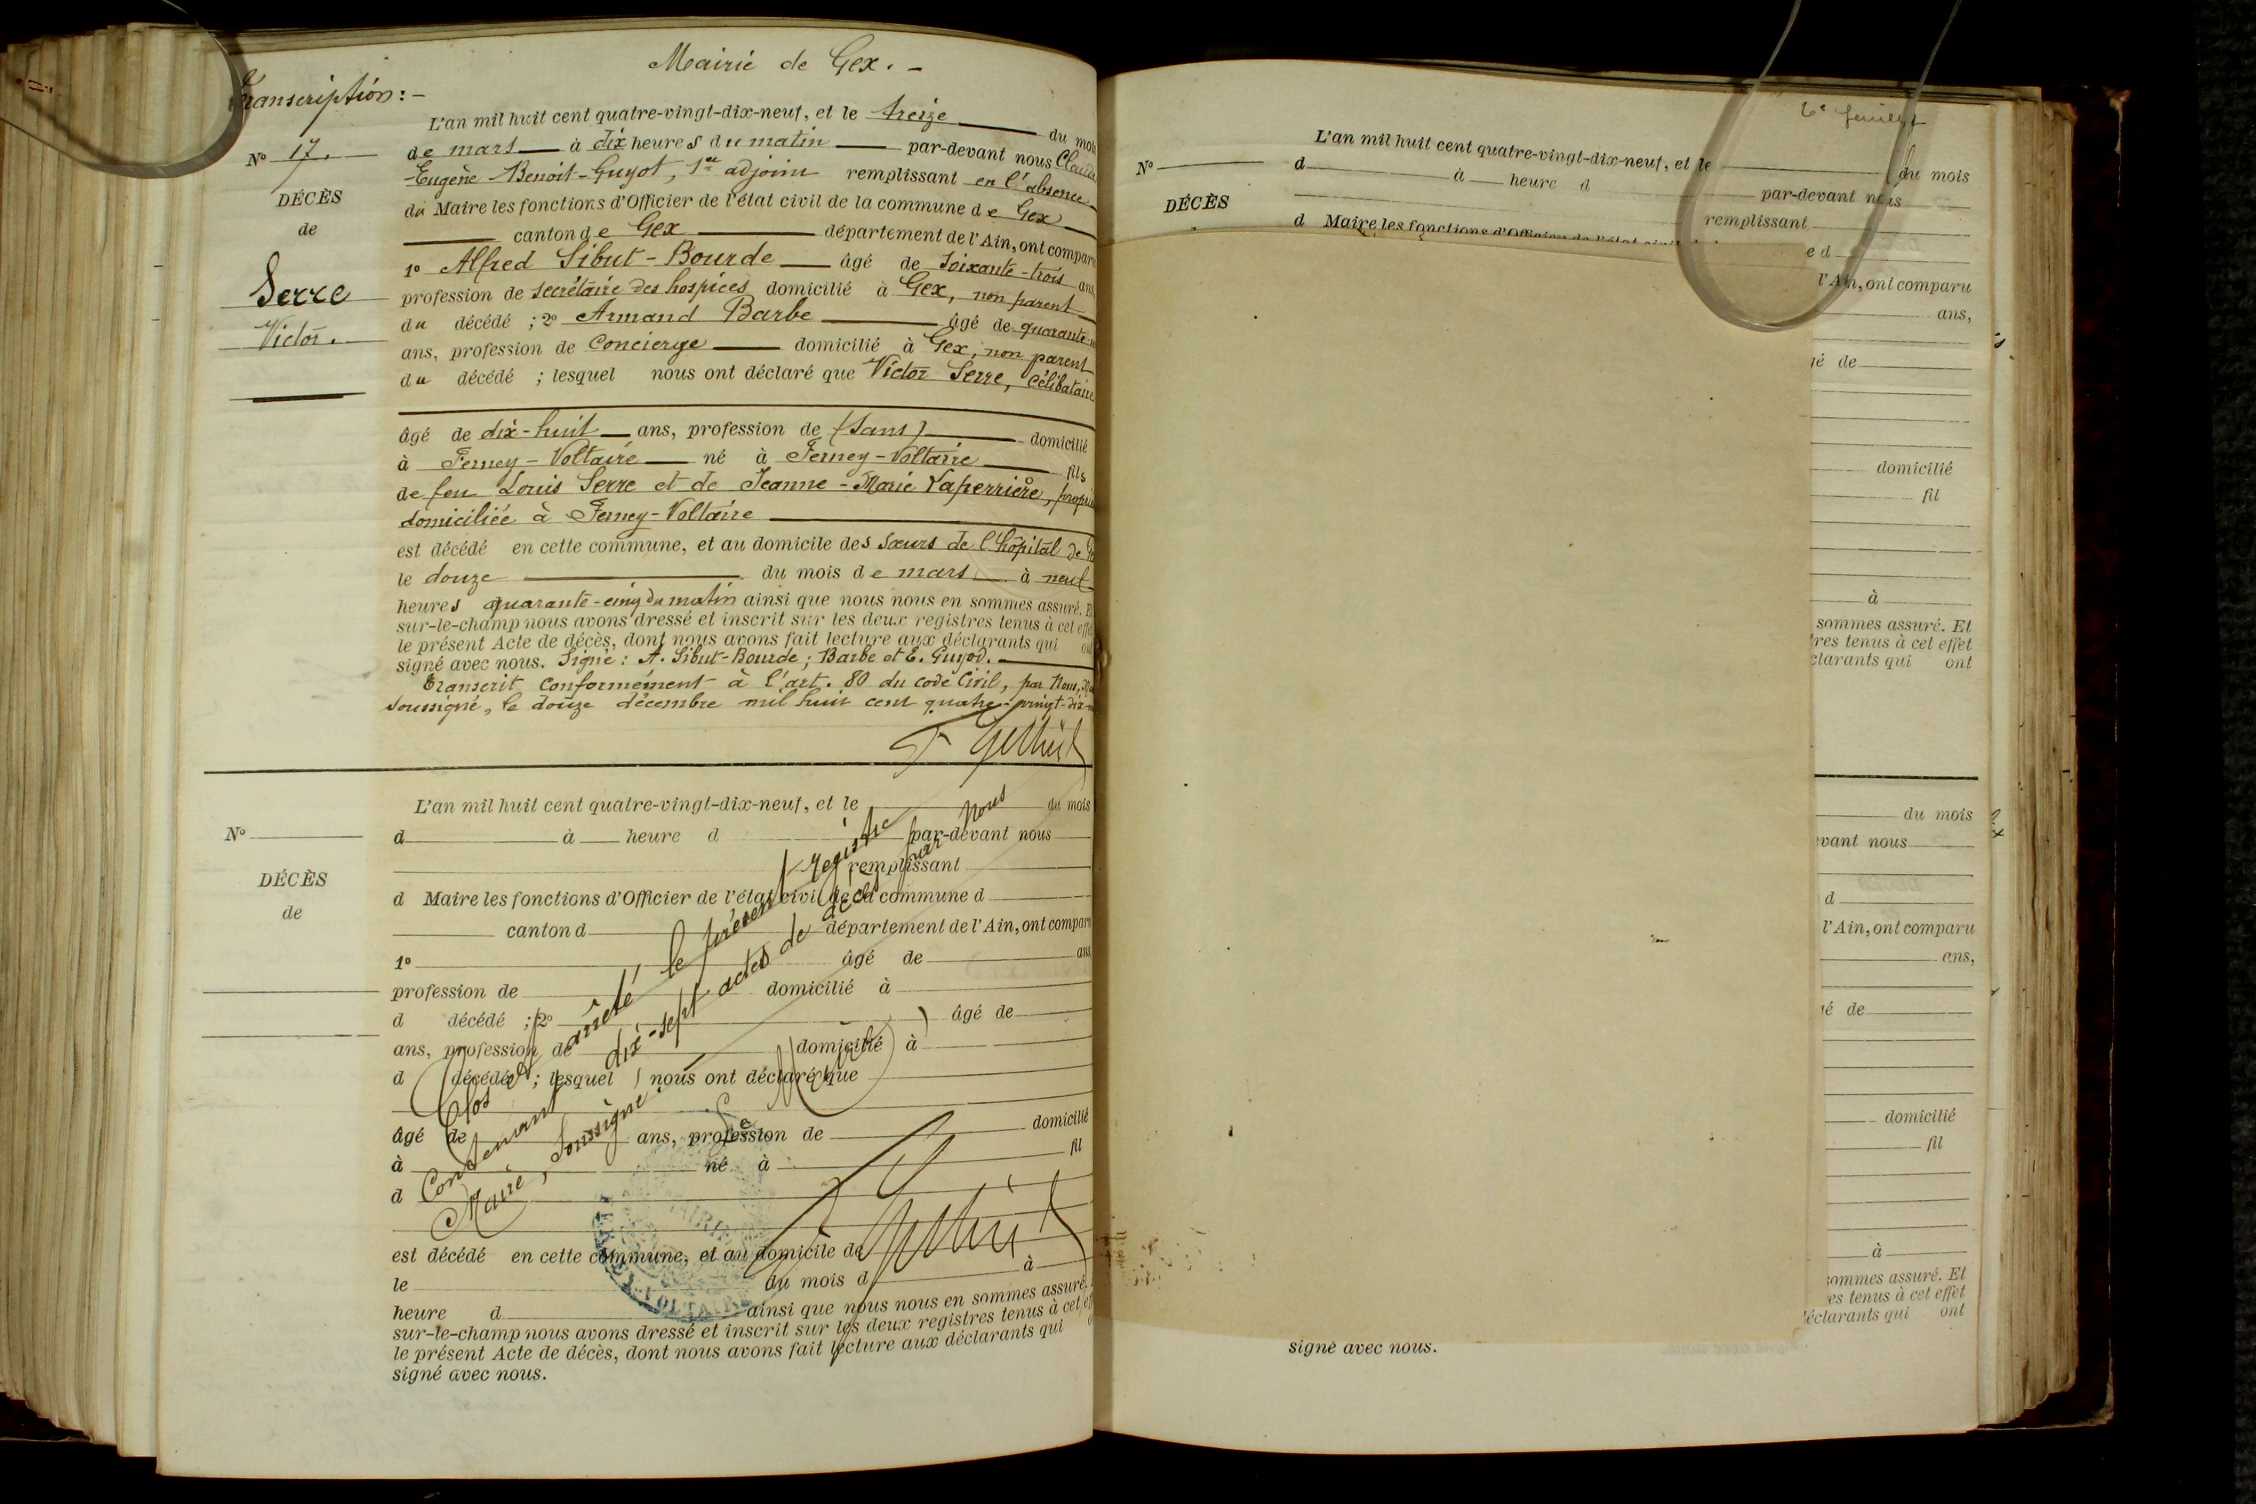 Mairie de Gex. -
Transcription : -
N° 17.
DÉCÈS
de
Serre
Victor.
L'an mil huit cent quatre-vingt-dix-neuf, et le treize du mois
de mars à dix heures du matin par-devant nous
Eugène Benoit-Guyot, 1er adjoint remplissant en l'absence
du Maire les fonctions d'Officier de l'état civil de la commune de Gex
canton de Gex département de l'Ain, ont comparu
1° Alfred Sibut-Bourde âgé de soixante-trois ans
profession de secrétaire des hospices domicilié à Gex, non parent
du décédé ; 2° Armand Barbe âgé de quarante
ans, profession de concierge domicilié à Gex, non parent
du décédé ; lesquel nous ont déclaré que Victor Serre, célibataire
âgé de dix-huit ans, profession de (sans) domicilié
à Ferney-Voltaire né à Ferney-Voltaire fils
de feu Louis Serre et de Jeanne-Marie Laperrière,
domiciliée à Ferney-Voltaire
est décédé en cette commune, et au domicile des sœurs de l'hôpital de
le douze du mois de mars à neuf
heures quarante-cinq du matin ainsi que nous nous en sommes assuré. Et
sur-le-champ nous avons dressé et inscrit sur les deux registres tenus à cet effet
le présent Acte de décès, dont nous avons fait lecture aux déclarants qui
signé avec nous. Signé : A. Sibut-Bourde ; Barbe et E. Guyot.
Transcrit conformément à l'art. 80 du code Civil, par Nous,
soussigné, le douze décembre mil huit cent quatre-vingt-dix
N°
DÉCÈS
de
L'an mil huit cent quatre-vingt-dix-neuf, et le du mois
d à heure d par-devant nous
remplissant
d Maire les fonctions d'Officier de l'état civil de la commune d
canton d département de l'Ain, ont comparu
1° âgé de ans
profession de domicilié à
d décédé ; 2° âgé de
ans, profession de domicilié à
d décédé ; lesquel nous ont déclaré que
âgé de ans, profession de domicilié
à né à fil
d
est décédé en cette commune, et au domicile de
le du mois d à
heure d ainsi que nous nous en sommes assuré.
sur-le-champ nous avons dressé et inscrit sur les deux registres tenus à cet
le présent Acte de décès, dont nous avons fait lecture aux déclarants qui
signé avec nous.
Clos et arrêté le présent registre
Contenant dix-sept actes de décès par Nous
Maire, soussigné.
MAIRIE
FERNEY-VOLTAIRE
6e feuillet
N°
DÉCÈS
L'an mil huit cent quatre-vingt-dix-neuf, et le du mois
d à heure d par-devant nous
remplissant
d Maire les fonctions d'Officier de l'état civil
e d
l'Ain, ont comparu
ans,
gé de
domicilié
fil
à
sommes assuré. Et
tres tenus à cet effet
clarants qui ont
du mois
evant nous
d
l'Ain, ont comparu
ans,
gé de
domicilié
fil
à
sommes assuré. Et
es tenus à cet effet
déclarants qui ont
signé avec nous.